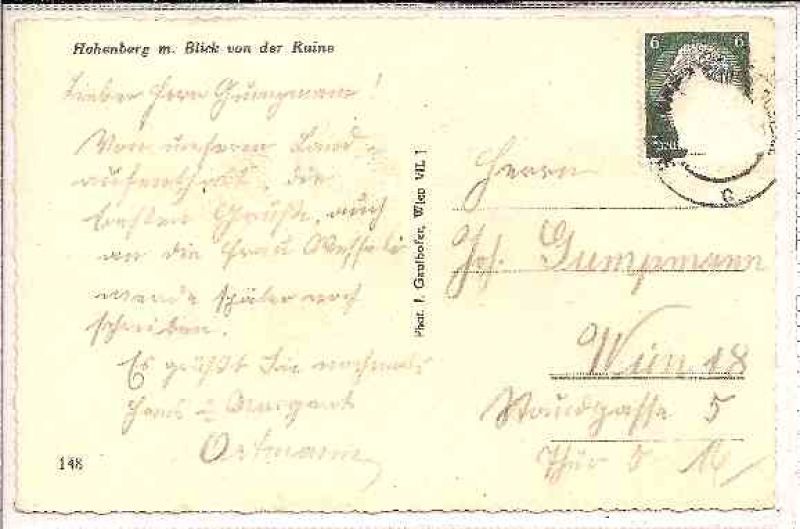 Hohenberg m. Blick von der Ruine
Lieber Herr Gumpmann!
Von unserem Land-
aufenthalt, die
besten Grüße, auch
an die Frau
werde später noch
schreiben.
Es grüßt Sie nochmals
Hans u.
Ortmann
148
Phot. J. Gaulhofer, Wien VII. 1
6 6
Herrn
Joh. Gumpmann
Wien 18
5
Thür 16